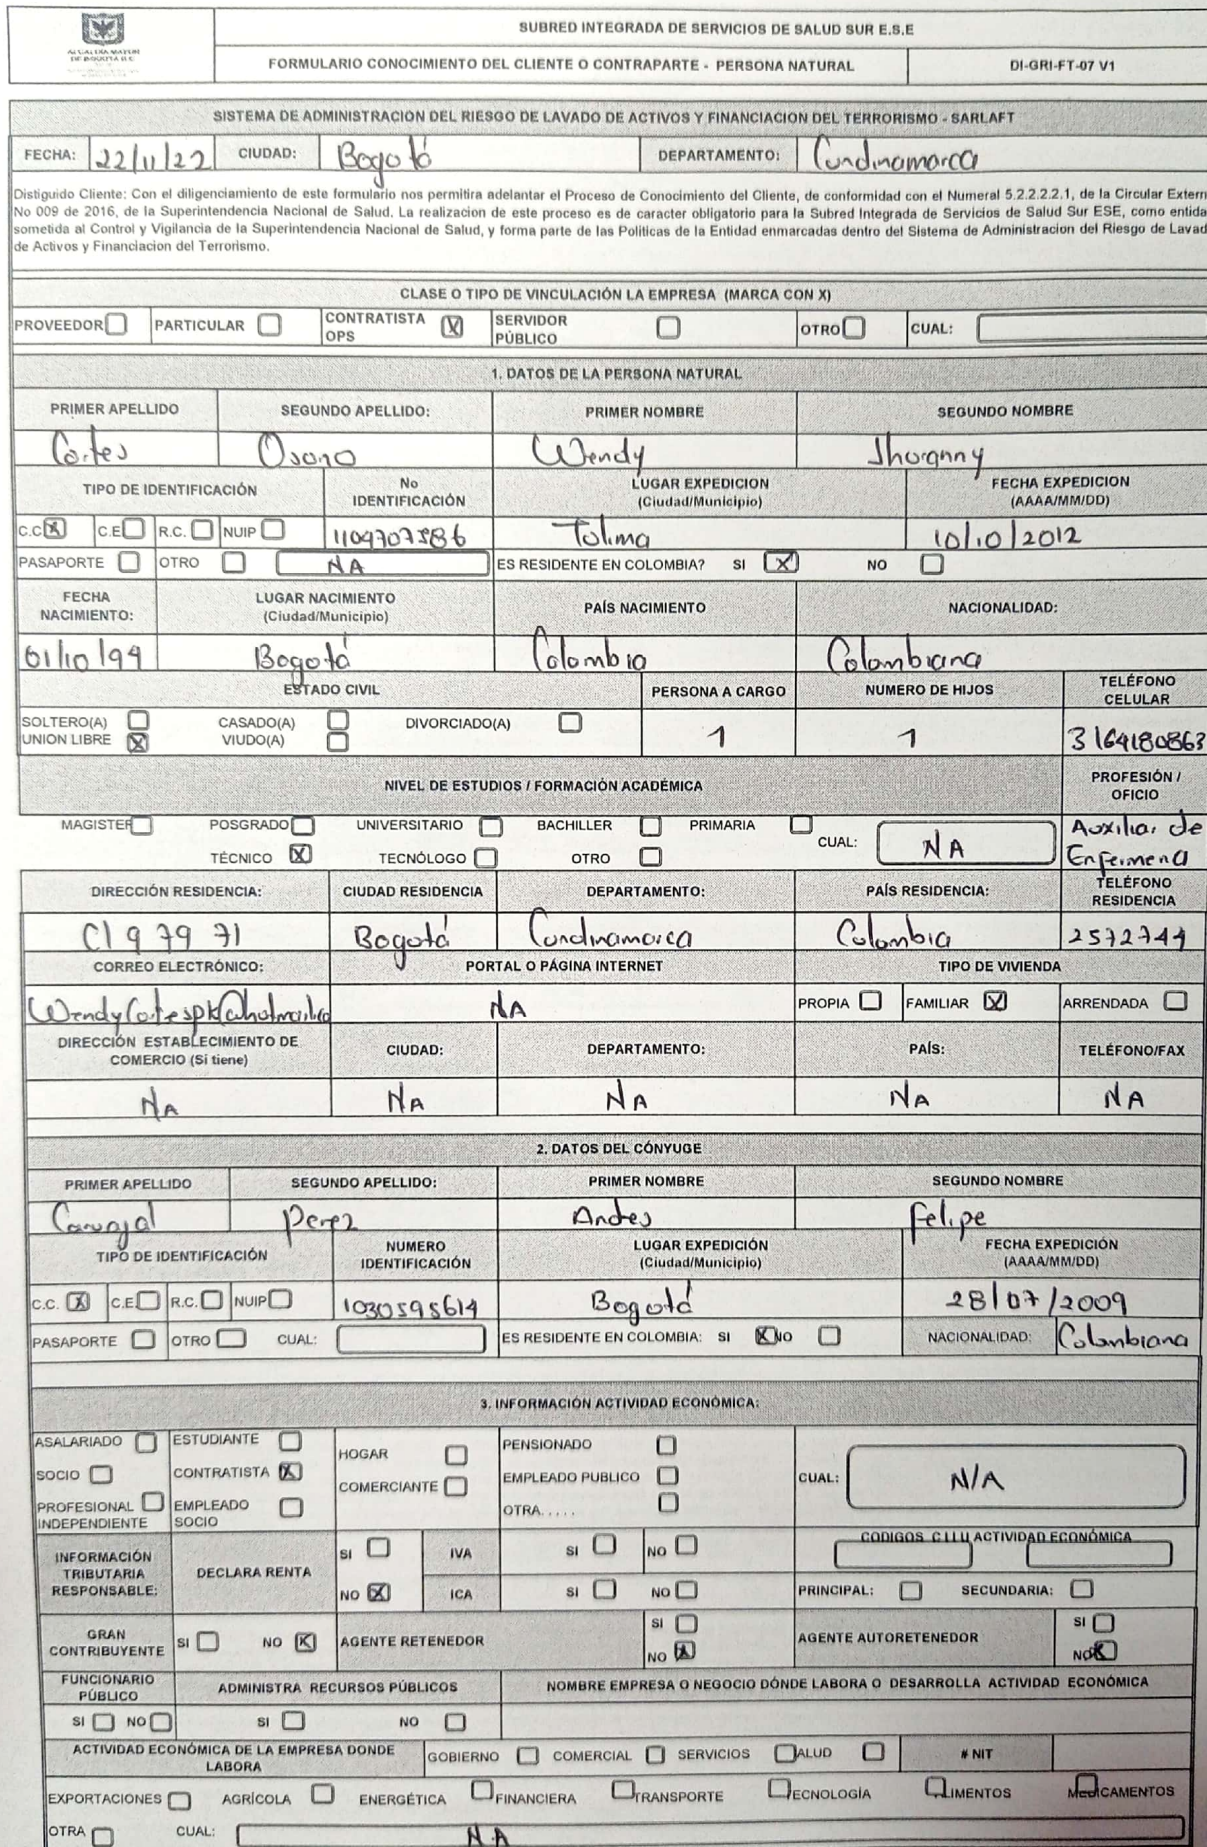 ALCALDÍA MAYOR
DE BOGOTÁ D.C.
SUBRED INTEGRADA DE SERVICIOS DE SALUD SUR E.S.E
FORMULARIO CONOCIMIENTO DEL CLIENTE O CONTRAPARTE - PERSONA NATURAL DI-GRI-FT-07 V1
SISTEMA DE ADMINISTRACION DEL RIESGO DE LAVADO DE ACTIVOS Y FINANCIACION DEL TERRORISMO - SARLAFT
FECHA: 22/11/22 CIUDAD: Bogotá DEPARTAMENTO: Cundinamarca
Distiguido Cliente: Con el diligenciamiento de este formulario nos permitira adelantar el Proceso de Conocimiento del Cliente, de conformidad con el Numeral 5.2.2.2.2.1, de la Circular Extern
No 009 de 2016, de la Superintendencia Nacional de Salud. La realizacion de este proceso es de caracter obligatorio para la Subred Integrada de Servicios de Salud Sur ESE, como entida
sometida al Control y Vigilancia de la Superintendencia Nacional de Salud, y forma parte de las Politicas de la Entidad enmarcadas dentro del Sistema de Administracion del Riesgo de Lavad
de Activos y Financiacion del Terrorismo.
CLASE O TIPO DE VINCULACIÓN LA EMPRESA (MARCA CON X)
PROVEEDOR PARTICULAR CONTRATISTA OPS X SERVIDOR PÚBLICO OTRO CUAL:
1. DATOS DE LA PERSONA NATURAL
PRIMER APELLIDO SEGUNDO APELLIDO: PRIMER NOMBRE SEGUNDO NOMBRE
Cortes Osorio Wendy Jhoranny
TIPO DE IDENTIFICACIÓN No IDENTIFICACIÓN LUGAR EXPEDICION (Ciudad/Municipio) FECHA EXPEDICION (AAAA/MM/DD)
C.C X C.E R.C. NUIP Tolima 10/10/2012
PASAPORTE OTRO NA ES RESIDENTE EN COLOMBIA? SI X NO
FECHA NACIMIENTO: LUGAR NACIMIENTO (Ciudad/Municipio) PAÍS NACIMIENTO NACIONALIDAD:
01/10/94 Bogotá Colombia Colombiana
ESTADO CIVIL PERSONA A CARGO NUMERO DE HIJOS TELÉFONO CELULAR
SOLTERO(A) CASADO(A) DIVORCIADO(A)
UNION LIBRE X VIUDO(A) 1 1 3164180863
NIVEL DE ESTUDIOS / FORMACIÓN ACADÉMICA PROFESIÓN / OFICIO
MAGISTER POSGRADO UNIVERSITARIO BACHILLER PRIMARIA CUAL: NA Auxiliar de
TÉCNICO X TECNÓLOGO OTRO Enfermeria
DIRECCIÓN RESIDENCIA: CIUDAD RESIDENCIA DEPARTAMENTO: PAÍS RESIDENCIA: TELÉFONO RESIDENCIA
Cl 9 79 71 Bogotá Cundinamarca Colombia 2572744
CORREO ELECTRÓNICO: PORTAL O PÁGINA INTERNET TIPO DE VIVIENDA
NA PROPIA FAMILIAR X ARRENDADA
DIRECCIÓN ESTABLECIMIENTO DE COMERCIO (Si tiene) CIUDAD: DEPARTAMENTO: PAÍS: TELÉFONO/FAX
NA NA NA NA NA
2. DATOS DEL CÓNYUGE
PRIMER APELLIDO SEGUNDO APELLIDO: PRIMER NOMBRE SEGUNDO NOMBRE
Carvajal Perez Andres Felipe
TIPO DE IDENTIFICACIÓN NUMERO IDENTIFICACIÓN LUGAR EXPEDICIÓN (Ciudad/Municipio) FECHA EXPEDICIÓN (AAAA/MM/DD)
C.C. X C.E R.C. NUIP 1030595614 Bogotá 28/07/2009
PASAPORTE OTRO CUAL: ES RESIDENTE EN COLOMBIA: SI X NO NACIONALIDAD: Colombiana
3. INFORMACIÓN ACTIVIDAD ECONÓMICA:
ASALARIADO ESTUDIANTE HOGAR PENSIONADO
SOCIO CONTRATISTA X COMERCIANTE EMPLEADO PUBLICO CUAL: N/A
PROFESIONAL INDEPENDIENTE EMPLEADO SOCIO OTRA.....
INFORMACIÓN TRIBUTARIA RESPONSABLE: DECLARA RENTA SI IVA SI NO CODIGOS C.I.I.U ACTIVIDAD ECONÓMICA
NO X ICA SI NO PRINCIPAL: SECUNDARIA:
GRAN CONTRIBUYENTE SI NO X AGENTE RETENEDOR SI NO X AGENTE AUTORETENEDOR SI NO X
FUNCIONARIO PÚBLICO ADMINISTRA RECURSOS PÚBLICOS NOMBRE EMPRESA O NEGOCIO DÓNDE LABORA O DESARROLLA ACTIVIDAD ECONÓMICA
SI NO SI NO
ACTIVIDAD ECONÓMICA DE LA EMPRESA DONDE LABORA GOBIERNO COMERCIAL SERVICIOS ALUD # NIT
EXPORTACIONES AGRÍCOLA ENERGÉTICA FINANCIERA TRANSPORTE ECNOLOGÍA LIMENTOS MEDICAMENTOS
OTRA CUAL: N.A